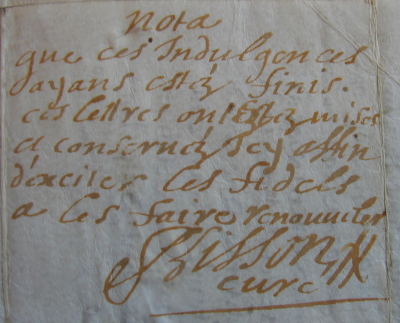 nota
que ces Indulgences
ayans estéz finis.
ces lettres ont estéz mises
et conservéz icy affin
d'exciter les fidels
a les faire renouveler
Bisson
curé